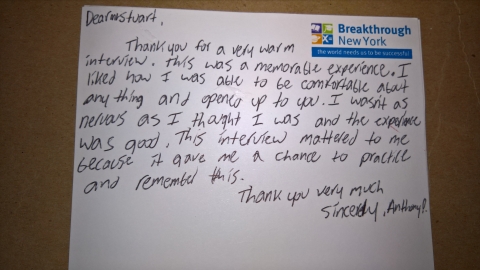 Dear mstuart,
Breakthrough
New York
the world needs us to be successful
Thank you for a very warm
interview. This was a memorable experience. I
liked how I was able to be comfortable about
any thing and opened up to you. I wasn't as
nervous as I thought I was and the experience
was good. This interview mattered to me
because it gave me a chance to practice
and remember this.
Thank you very much
Sincerely, Anthony P.